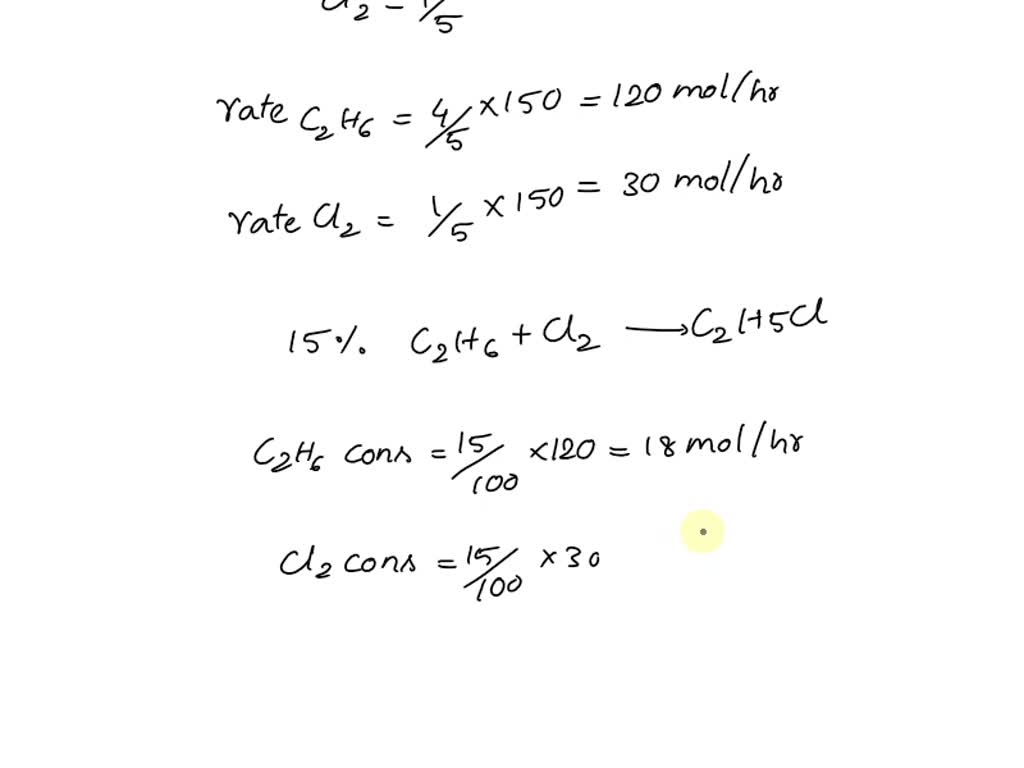 Cl2 = 1/5
rate C2H6 = 4/5 × 150 = 120 mol/hr
rate Cl2 = 1/5 × 150 = 30 mol/hr
15% C2H6 + Cl2 → C2H5Cl
C2H6 cons = 15/100 × 120 = 18 mol/hr
Cl2 cons = 15/100 × 30